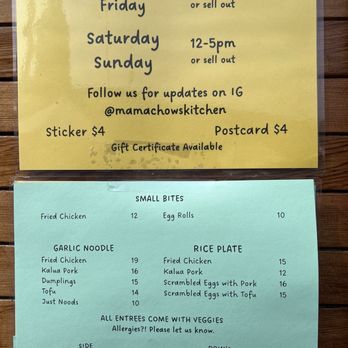 Friday
or sell out
Saturday 12-5pm
Sunday or sell out
Follow us for updates on IG
@mamachowskitchen
Sticker $4 Postcard $4
Gift Certificate Available
SMALL BITES
Fried Chicken 12 Egg Rolls 10
GARLIC NOODLE RICE PLATE
Fried Chicken 19 Fried Chicken 15
Kalua Pork 16 Kalua Pork 12
Dumplings 15 Scrambled Eggs with Pork 16
Tofu 14 Scrambled Eggs with Tofu 15
Just Noods 10
ALL ENTREES COME WITH VEGGIES
Allergies?! Please let us know.
SIDE